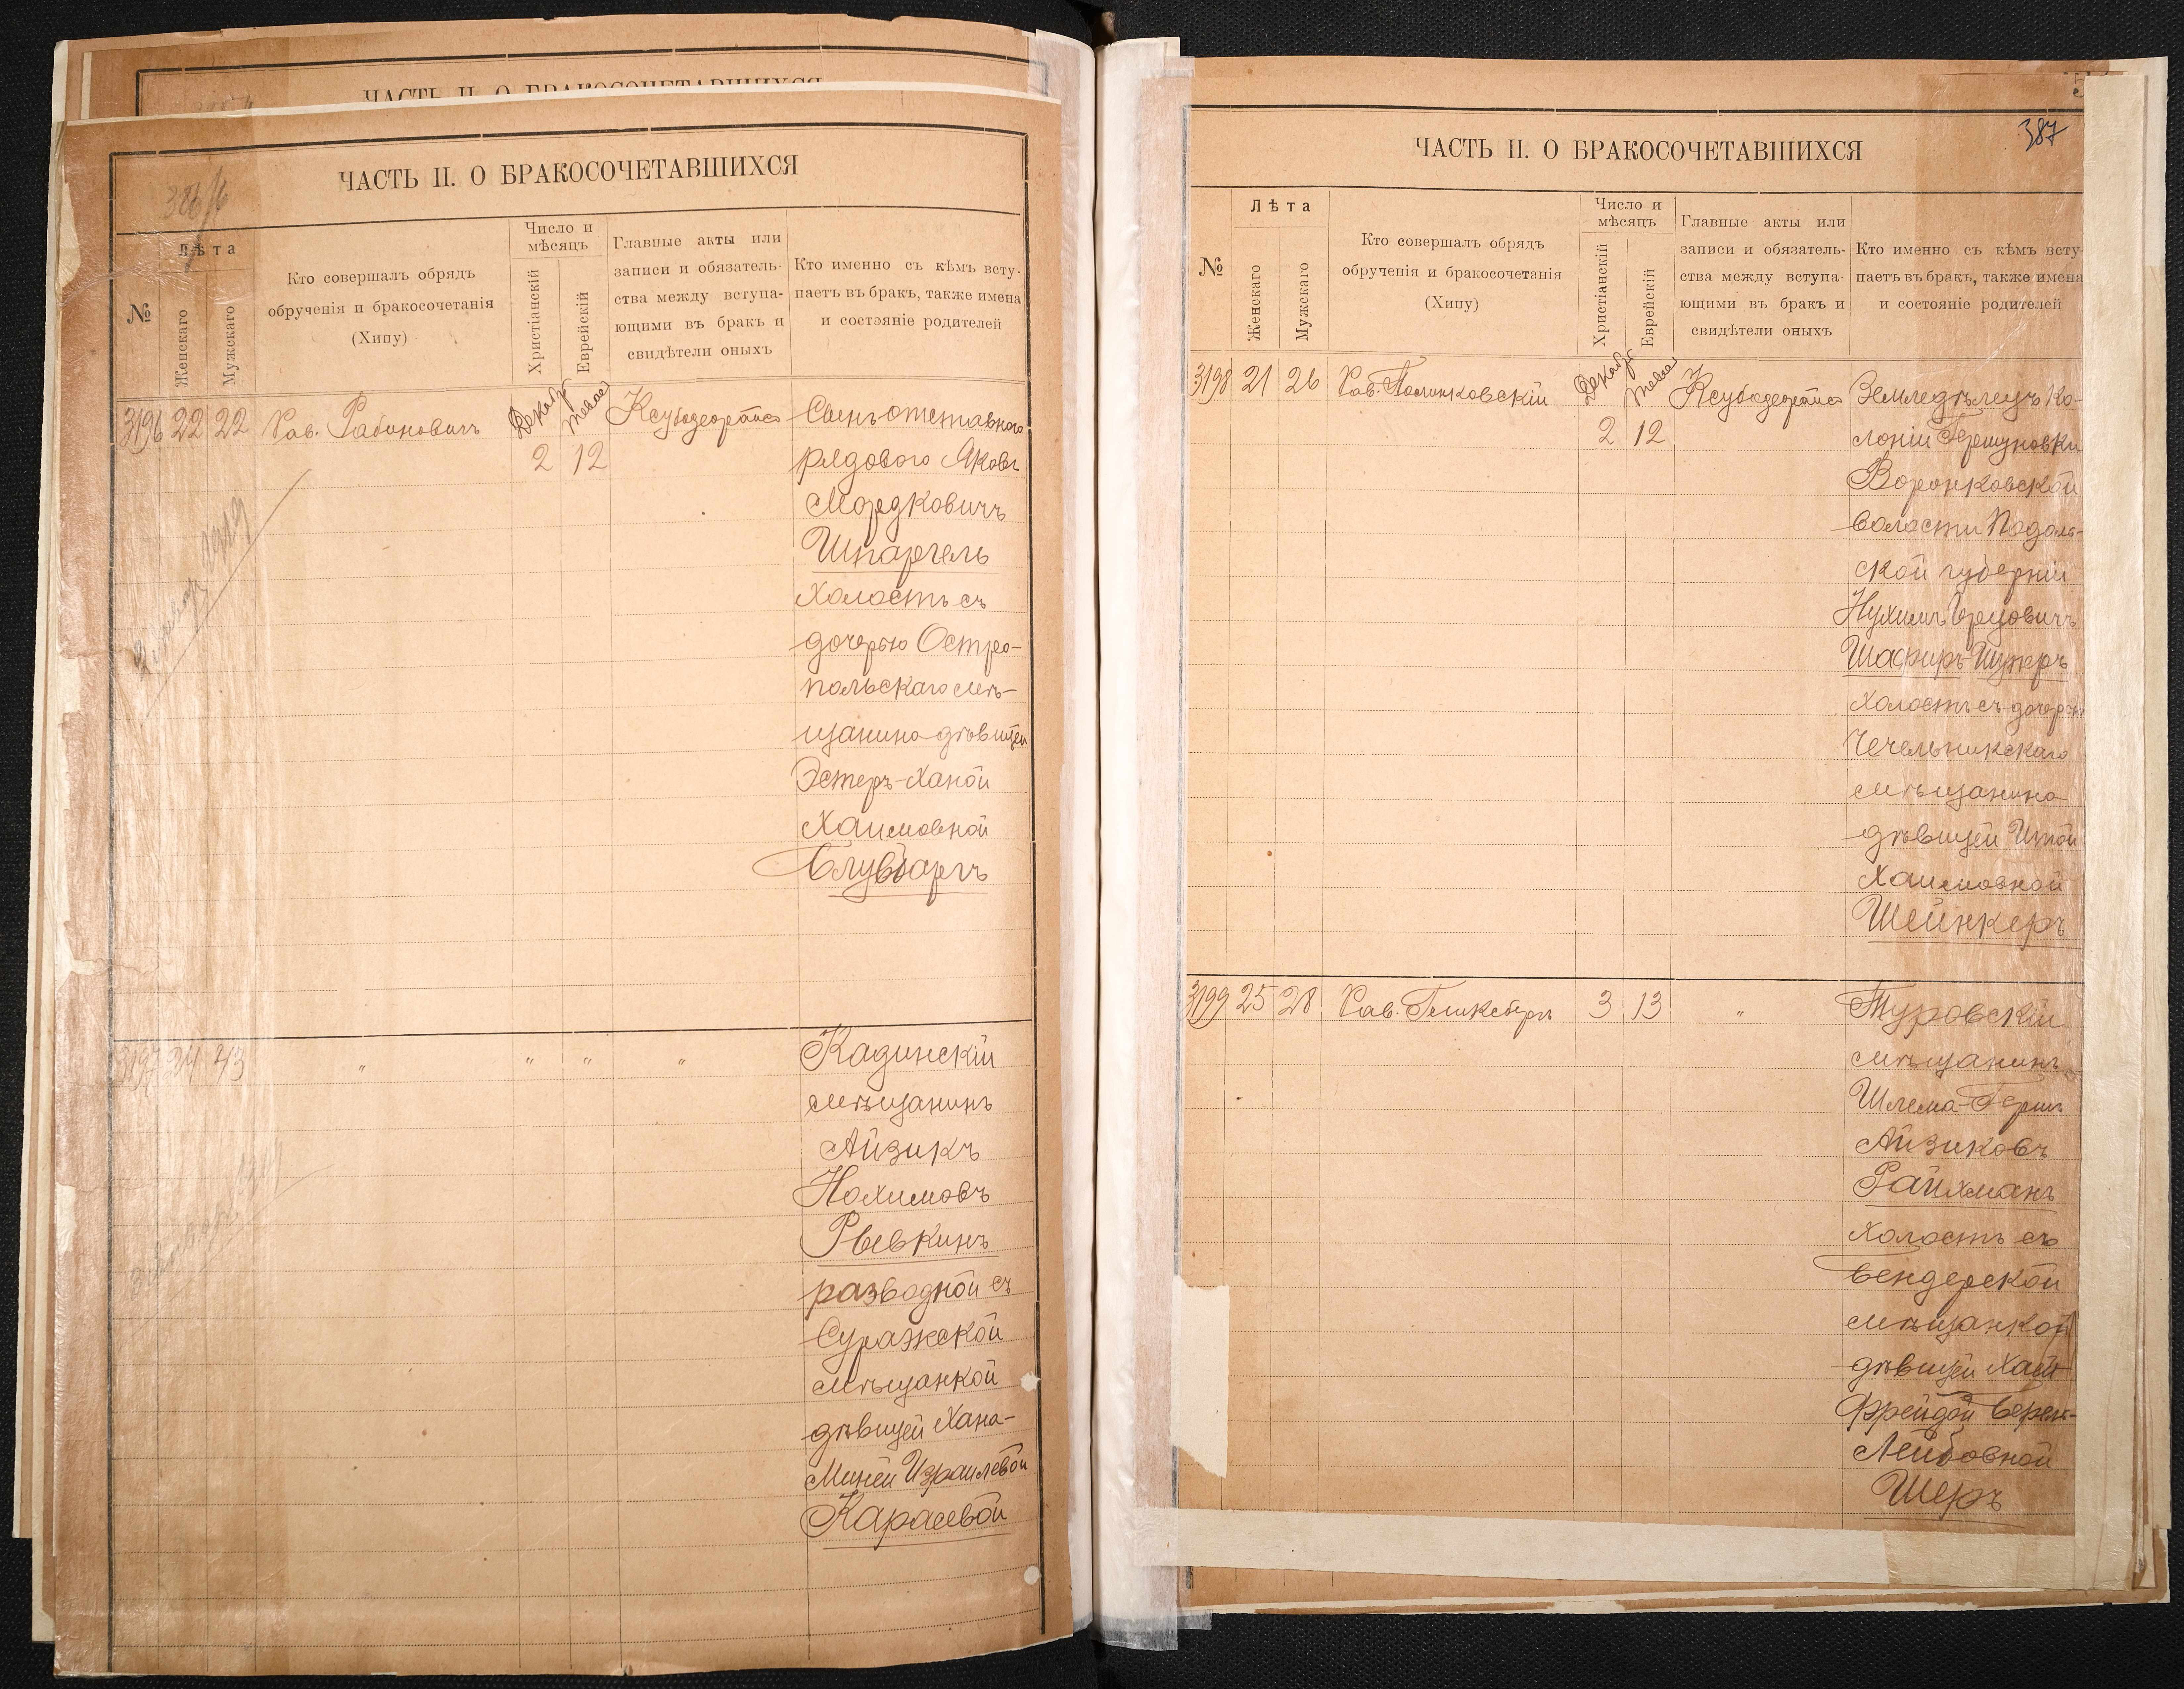 ЧАСТЬ II. О БРАКОСОЧЕТАВШИХСЯ
ЧАСТЬ II. О БРАКОСОЧЕТАВШИХСЯ
№
Лѣта
Женскаго
Мужскаго
Кто совершалъ обрядъ
обрученія и бракосочетанія
(Хипу)
Число и
мѣсяцъ
Христіанскій
Еврейскій
Главные акты или
записи и обязатель-
ства между вступа-
ющими въ бракъ и
свидѣтели оныхъ
Кто именно съ кѣмъ всту-
паетъ въ бракъ, также имена
и состояніе родителей
3196 22 22 Рав. Рабиновичъ Декабр Тевес
2 12
Сынъ отставного
рядового Яковъ
Мордковичъ
Шпаргель
холостъ съ
дочерью Остро-
польскаго мѣ-
щанина дѣвицей
Эстеръ-Ханой
Хаимовной
3197 24 43 " " " "
мѣщанинъ
Айзикъ
Нохимовъ
Рывкинъ
разводной съ
Суражской
мѣщанкой
дѣвицей Хана-
Миней Израилевой
Карасевой
387
ЧАСТЬ II. О БРАКОСОЧЕТАВШИХСЯ
№
Лѣта
Женскаго
Мужскаго
Кто совершалъ обрядъ
обрученія и бракосочетанія
(Хипу)
Число и
мѣсяцъ
Христіанскій
Еврейскій
Главные акты или
записи и обязатель-
ства между вступа-
ющими въ бракъ и
свидѣтели оныхъ
Кто именно съ кѣмъ всту-
паетъ въ бракъ, также имена
и состояніе родителей
3198 21 26 Рав. Полинковскій Декабр Тевес Земледѣлецъ ко-
2 12 лоніи Гершуновки
Воронковской
волости Подоль-
ской губерніи
Нухимъ
холостъ съ дочерью
Чечельникскаго
мѣщанина
дѣвицей Итой
Хаимовной
Шейнкеръ
3199 25 28 Рав. 3 13 " Туровскій
мѣщанинъ
Шлема-Герш
Айзиковъ
Райхманъ
холостъ съ
Бендерской
мѣщанкой
дѣвицей Хая-
Фрейдой Берко-
Лейбовной
Шеръ